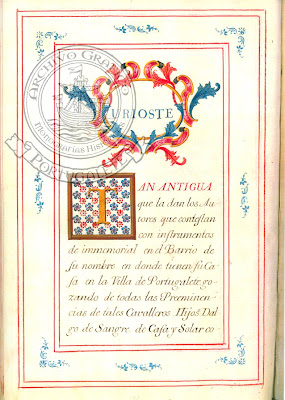 ARCHIVO GRA
Memorias His
PORTUGALE
URIOSTE
TAN ANTIGUA
que la dan los Au-
tores que contestan
con instrumentos
de immemorial en el Barrio de
su nombre en donde tienen su Ca-
sa en la Villa de Portugalete, go-
zando de todas las Preeminen-
cias de tales Cavalleros Hijos Dal-
go de Sangre, de Casa y Solar co-